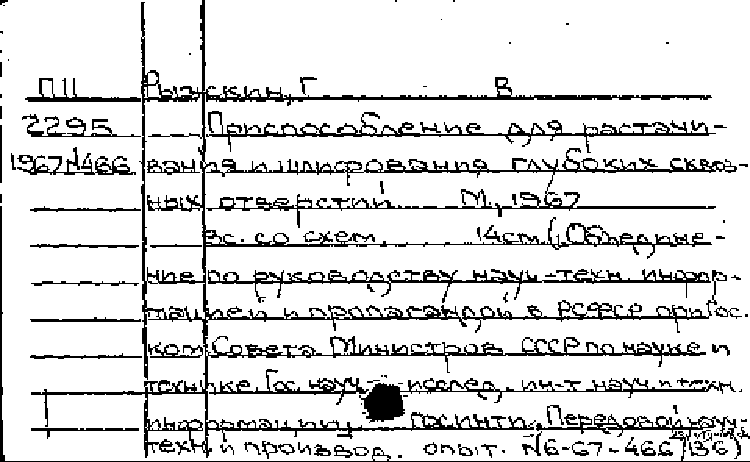 П11 Рыжкин, Г В
2295 Приспособление для растачи-
1967 N466 вания и шлифования глубоких сквоз-
ных отверстий М., 1967
3с. со схем. 14см. (Объедине-
ние по руководству науч.-техн. инфор-
мацией и пропагандой в РСФСР при Гос.
ком. Совета Министров СССР по науке и
технике. Гос. науч.- исслед. ин-т науч. и техн.
информации ГОСИНТИ. Передовой науч.-
техн. и производ. опыт. N6-67-466/36)